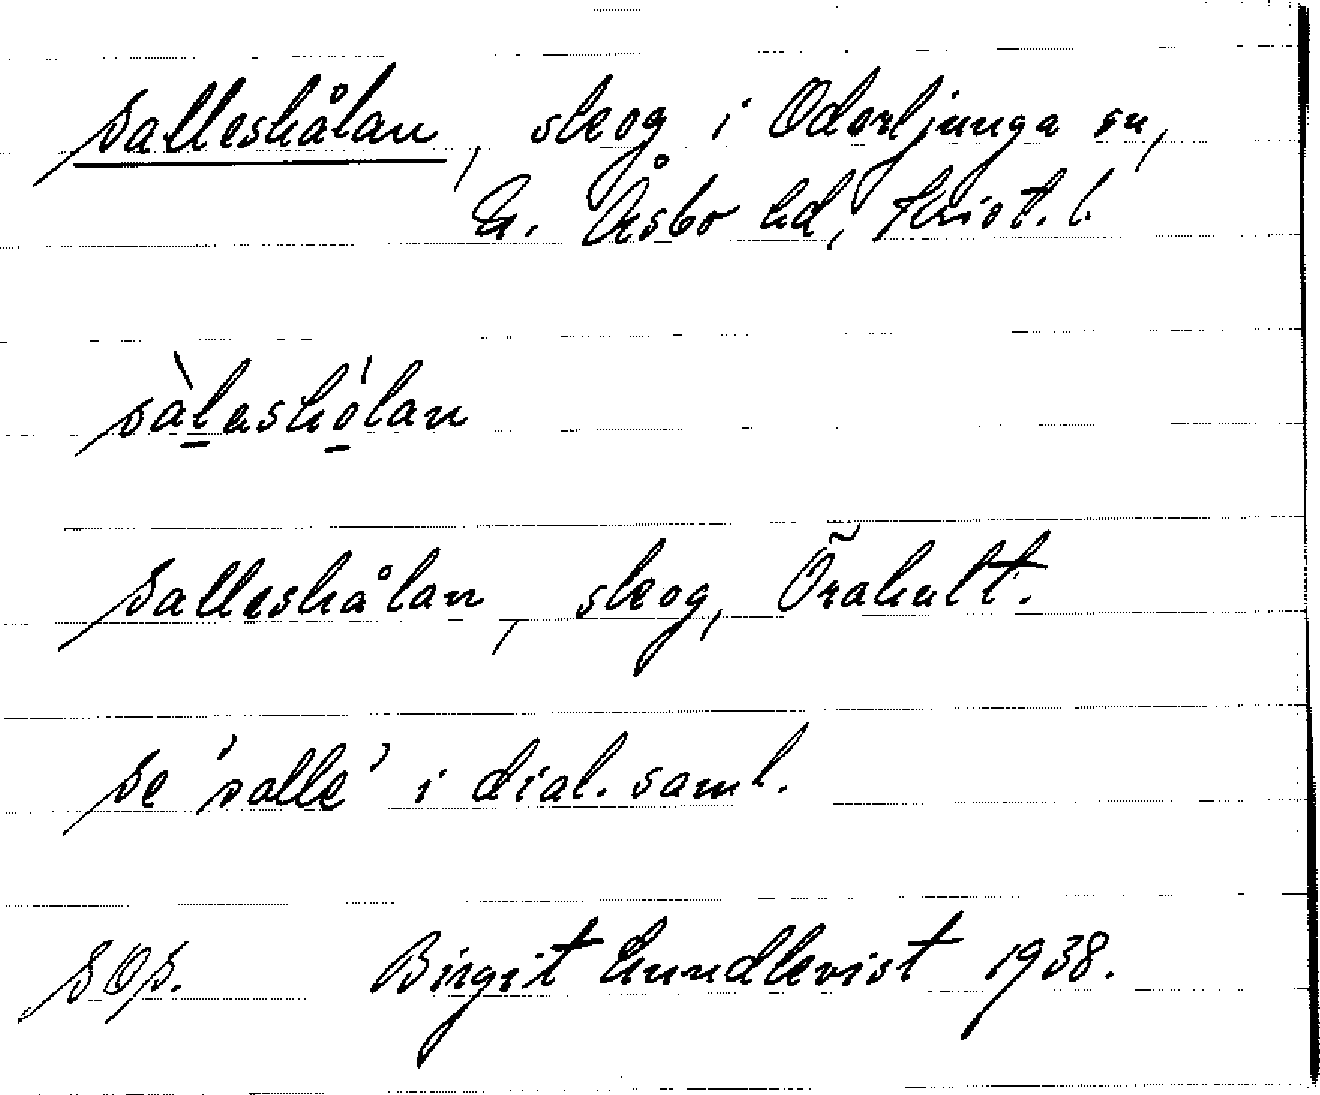 Salleshålan, skog i Oderljunga sn,
G. Åsbo hd, Krist. l.
sàlashó̱lan
Salleshålan, skog, Örahult.
Se 'salle' i dial. saml.
SOS. Birgit Lundkvist 1938.